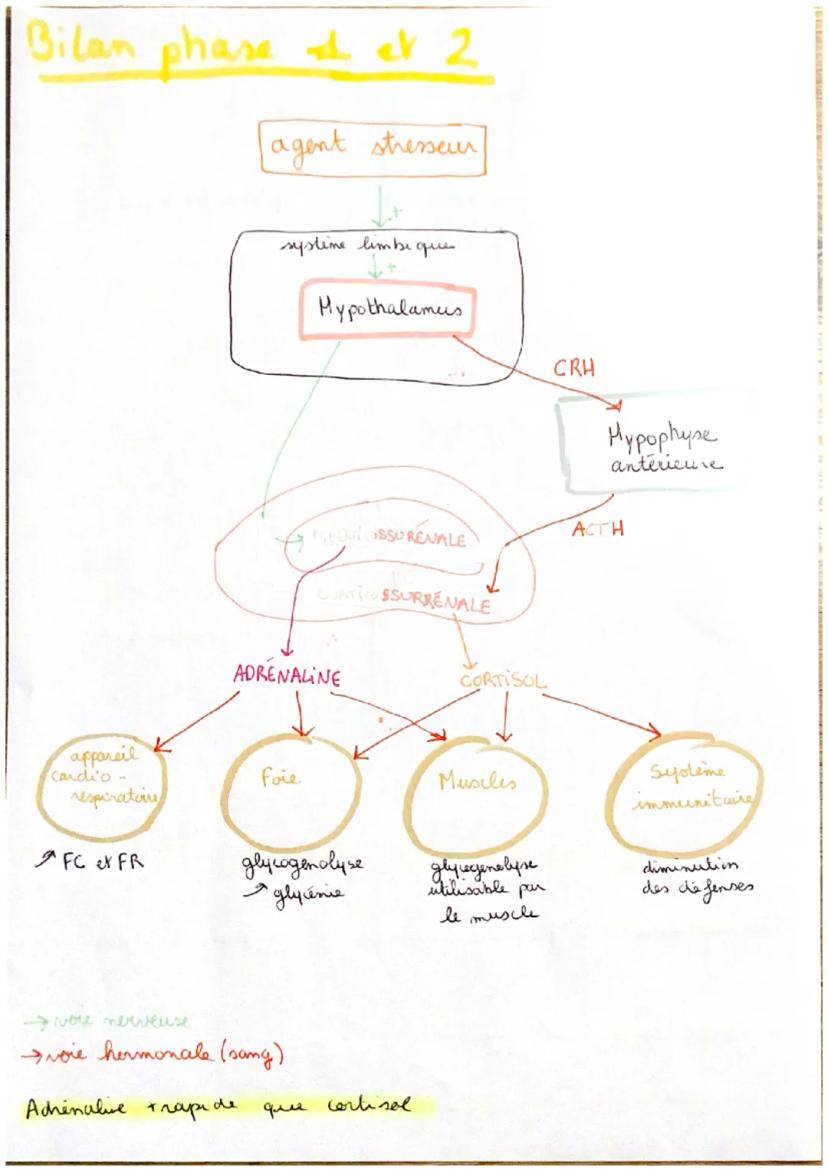 Bilan phase 1 et 2
agent stresseur
+
système limbique
+
Hypothalamus
CRH
Hypophyse
antérieure
ACTH
MEDULLOSSURÉNALE
CORTICOSSURRÉNALE
ADRÉNALINE
CORTISOL
appareil
cardio-
respiratoire
Foie
Muscles
Système
immunitaire
↗ FC et FR
glycogenolyse
↗ glycémie
glycogenolyse
utilisable par
le muscle
diminution
des défenses
→ voie nerveuse
→ voie hormonale (sang)
Adrénaline + rapide que cortisol